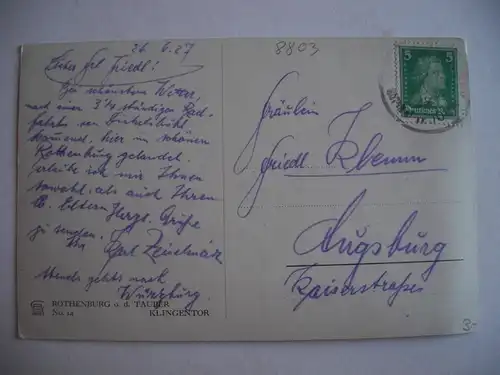 26. 6. 27
8803
Liebes Frl. Friedl!
Bei schönstem Wetter,
nach einer 3¼ stündigen Rad-
fahrt von Dinkelsbühl
kommend, hier im schönen
Rothenburg gelandet.
Erlaube ich mir Ihnen
sowohl, als auch Ihren
lb. Eltern Herzl. Grüße
zu senden.
Ihr
Karl
Abends gehts nach
Würzburg.
ROTHENBURG o. d. TAUBER
No. 12 KLINGENTOR
5 5
Deutsches Reich
Fräulein
Friedl
Augsburg
Kaiserstraße
3-